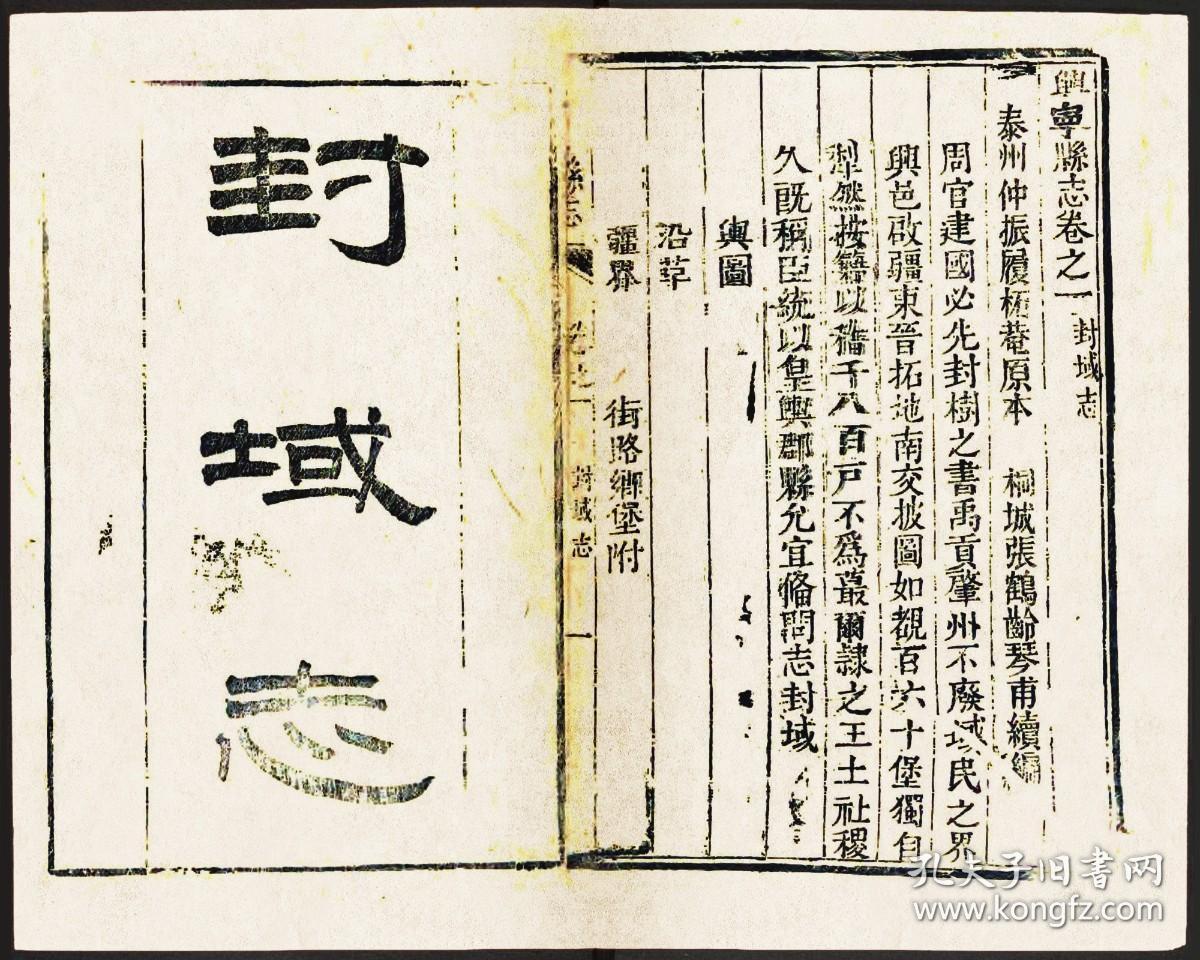 興寧縣志卷之一 封域志
泰州仲振履柘菴原本 桐城張鶴齡琴甫續編
周官建國必先封樹之書禹貢肇州不廢域民之界
興邑啟疆東晉拓地南交披圖如覩百六十堡獨自
犁然按籍以稽千八百戸不為蕞爾隷之王土社稷
久既稱臣統以皇輿郡縣允宜偹問志封域
輿圖
沿革
疆界 街路鄉堡附
縣志 卷之一 封域志 一
封域志
孔夫子旧书网
www.kongfz.com